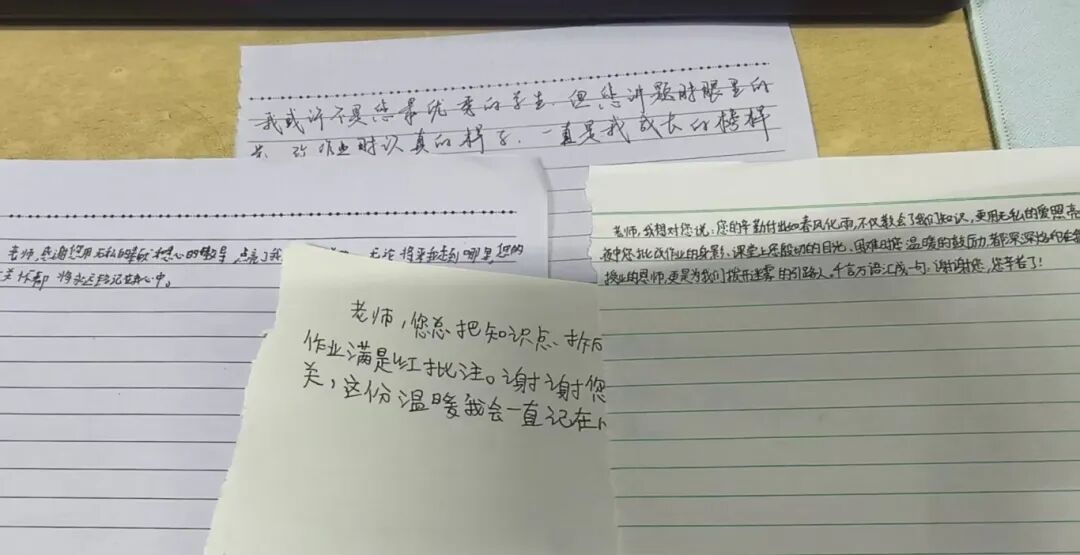 我或许不是您最优秀的学生，但您讲题时眼里的
光、改作业时认真的样子，一直是我成长的榜样
老师，感谢您用无私的奉献和悉心的教导，点亮了我
无论将来我走到哪里，您的
关怀都将永远铭记在心中。
老师，您总把知识点、拆
作业满是红批注。谢谢您
关，这份温暖我会一直记在
老师，我想对您说：您的辛勤付出如春风化雨，不仅教会了我们知识，更用无私的爱照亮
夜中您批改作业的身影、课堂上您殷切的目光、困难时您温暖的鼓励，都深深烙印在
授业的恩师，更是为我们拨开迷雾的引路人。千言万语汇成一句：谢谢您，您辛苦了！